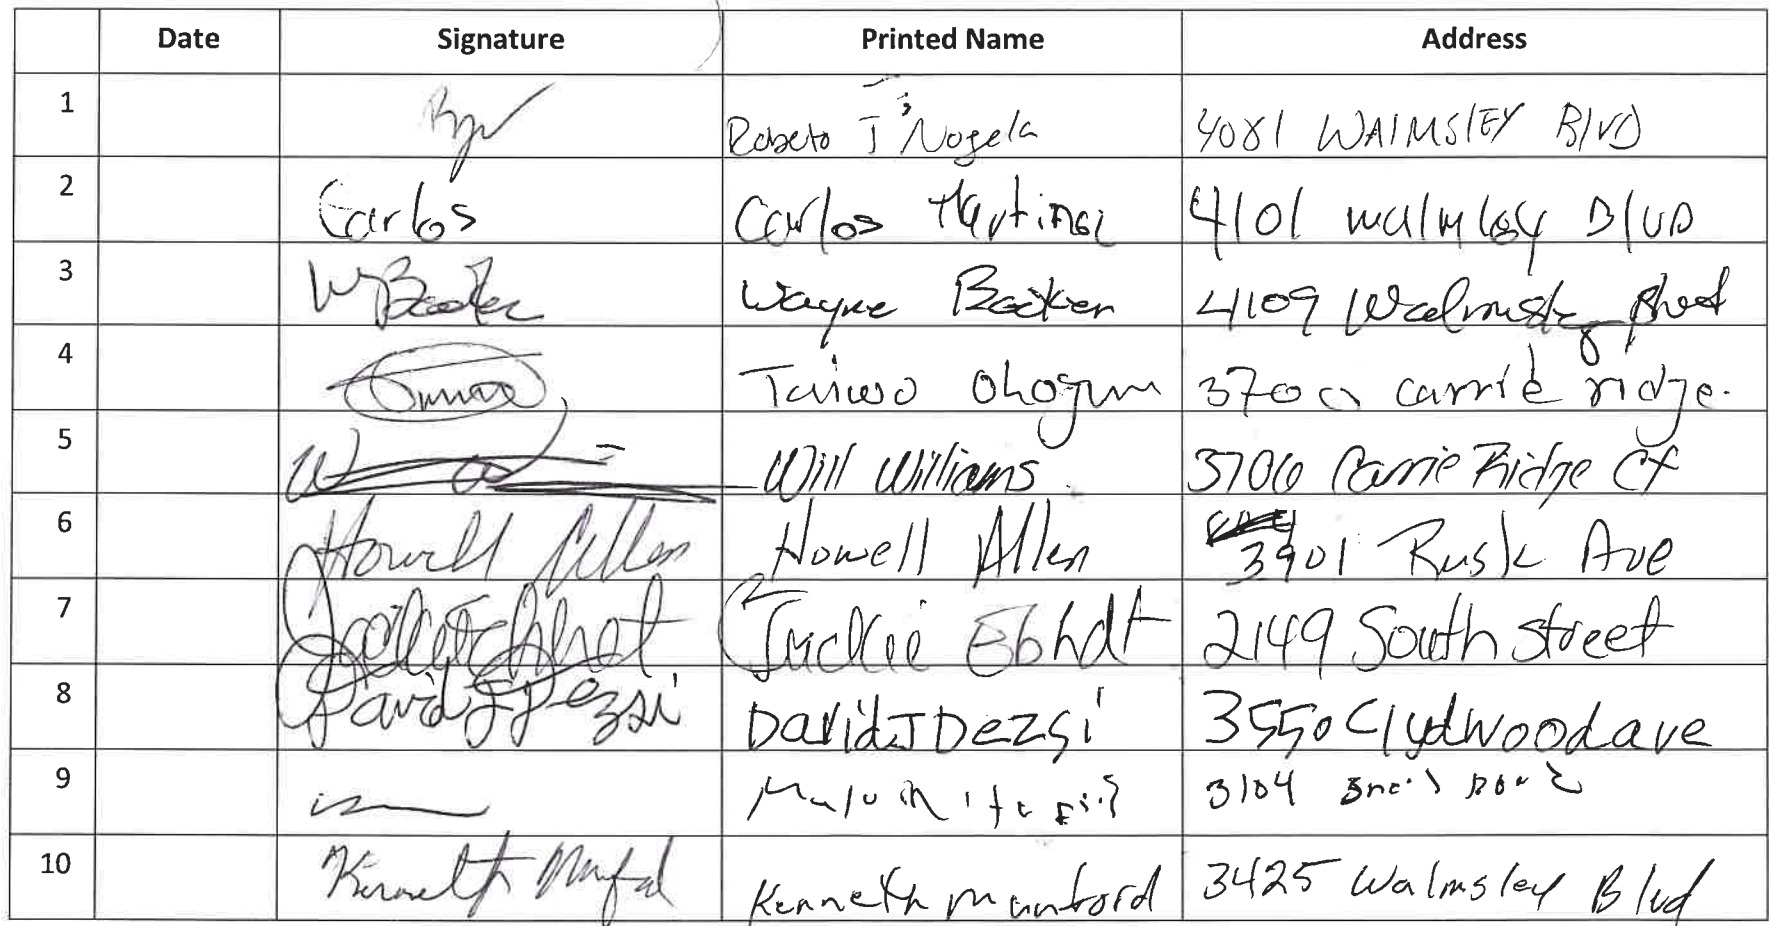 Date Signature Printed Name Address
1 Roberto J Nogela 4081 WAlMSlEY Blvd
2 Carlos Carlos Martinez 4101 walmley Blvd
3 W Booker Wayne Booker 4109 Walmsley
4 Taiwo Ologun 3700 carrie ridge.
5 Will Williams 3706 Carrie Ridge Ct
6 Howell Allen Howell Allen 3901 Rusk Ave
7 Jackie Ebhdt 2149 South street
8 David J Dezsi David J Dezsi 3550 Clydwood ave
9 3104
10 Kenneth Munford Kenneth Munford 3425 Walmsley Blvd